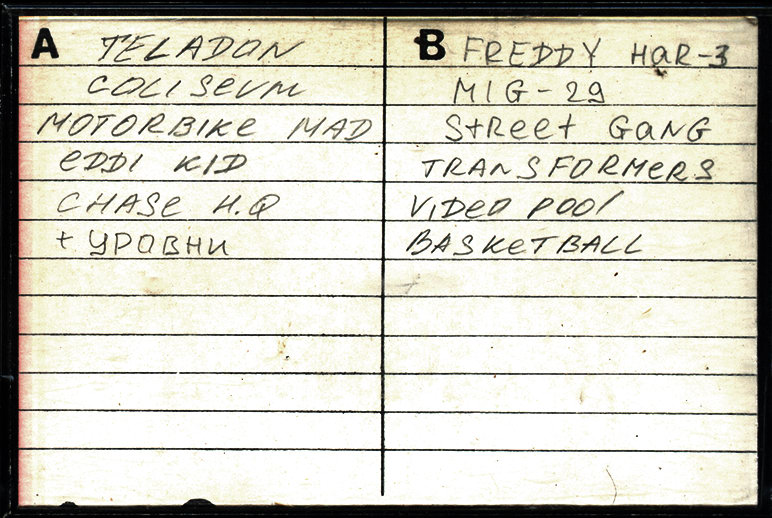 A TELADON
COLISEUM
MOTORBIKE MAD
EDDI KID
CHASE H.Q
+ УРОВНИ
B FREDDY HaR-3
MIG-29
StReet GaNG
TRANSFORMERS
VIDEO POOl
BASKETBALL